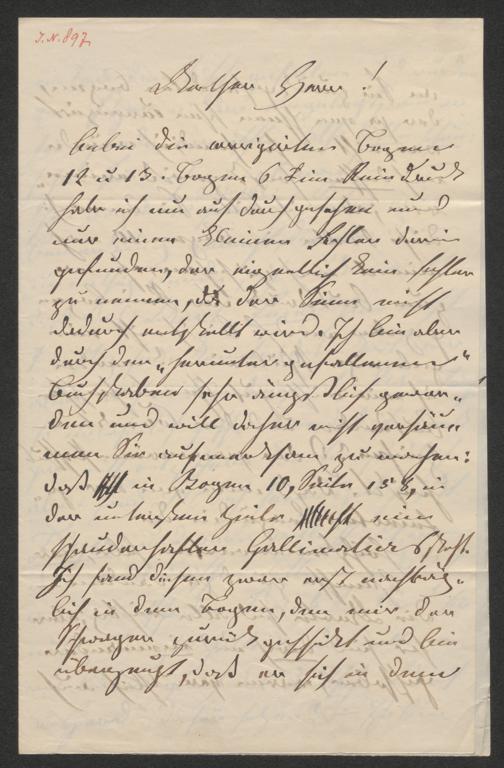 I.N. 897
Verehrter Herr!
hiebei die corrigirten Bogen
12 u 13. Bogen 6 im Reindruck
habe ich nur auf durchgesehen und
nur einen kleinen Fehler darin
gefunden, der eigentlich kein Fehler
zu nennen, da der Sinn nicht
dadurch entstellt wird. Ich bin aber
durch den „herunter gefallenen"
Buchstaben sehr ängstlich gewor„
den und will daher nicht versäum
men Sie aufmerksam zu machen:
daß in Bogen 10, Seite 158, in
der untersten Zeile ein
schauderhafter Gallimatias steht.
Ich fand diesen zwar erst nachträg„
lich in dem Bogen, den mir der
zurück geschickt und bin
überzeugt, daß er sich in dem